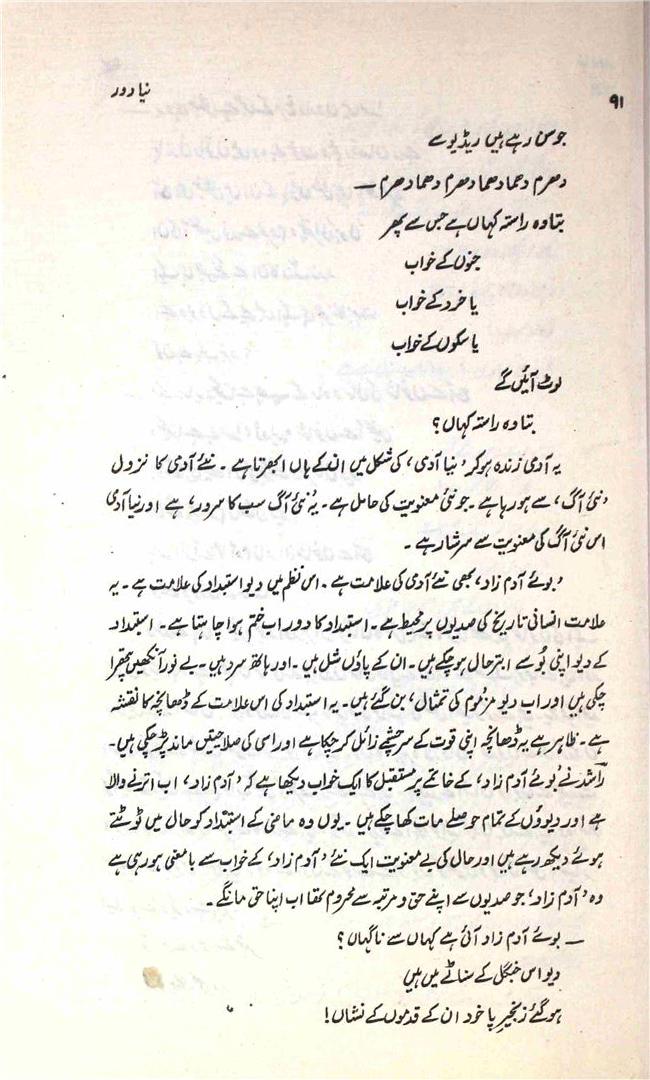 ۹۱
نیا دور
جو سنا رہے ہیں ریڈیو سے
دھرم دھما دھما دھرم دھما دھرم —
بتا وہ راستہ کہاں ہے جس سے پھر
جنوں کے خواب
یا خرد کے خواب
یا سکوں کے خواب
لوٹ آئیں گے
بتا وہ راستہ کہاں؟
یہ آدمی زندہ ہو کر 'نیا آدمی' کی شکل میں ان کے ہاں ابھرتا ہے ۔ نئے آدمی کا نزول
'نئی آگ' سے ہو رہا ہے ۔ جو نئی معنویت کی حامل ہے ۔ یہ نئی آگ سب کا سرور ہے اور نیا آدمی
اس نئی آگ کی معنویت سے سرشار ہے ۔
'بوئے آدم زاد' بھی نئے آدمی کی علامت ہے ۔ اس نظم میں دیو استبداد کی علامت ہے ۔ یہ
علامت انسانی تاریخ کی صدیوں پر محیط ہے ۔ استبداد کا دور اب ختم ہوا چاہتا ہے ۔ استبداد
کے دیو اپنی بُو سے ابتر حال ہو چکے ہیں ۔ ان کے پاؤں شل ہیں ۔ اور ہاتھ سرد ہیں ۔ بے نور آنکھیں پتھرا
چکی ہیں اور اب دیو مزموم کی تمثال' بن گئے ہیں ۔ یہ استبداد کی اس علامت کے ڈھانچہ کا نقشہ
ہے ۔ ظاہر ہے یہ ڈھانچہ اپنی قوت کے سرچشمے زائل کر چکا ہے اور اسی کی صلاحیتیں ماند پڑ چکی ہیں ۔
راشد نے بوئے آدم زاد' کے خاتمے پر مستقبل کا ایک خواب دیکھا ہے کہ 'آدم زاد' اب اترنے والا
ہے اور دیوؤں کے تمام حوصلے مات کھا چکے ہیں ۔ یوں وہ ماضی کے استبداد کو حال میں ٹوٹتے
ہوئے دیکھ رہے ہیں اور حال کی بے معنویت ایک نئے 'آدم زاد' کے خواب سے بامعنی ہو رہی ہے
وہ 'آدم زاد' جو صدیوں سے اپنے حق و مرتبہ سے محروم تھا اب اپنا حق مانگے ۔
— بوئے آدم زاد آئی ہے کہاں سے ناگہاں؟
دیو اس جنگل کے سناٹے میں ہیں
ہو گئے زنجیرِ پا خود ان کے قدموں کے نشاں!